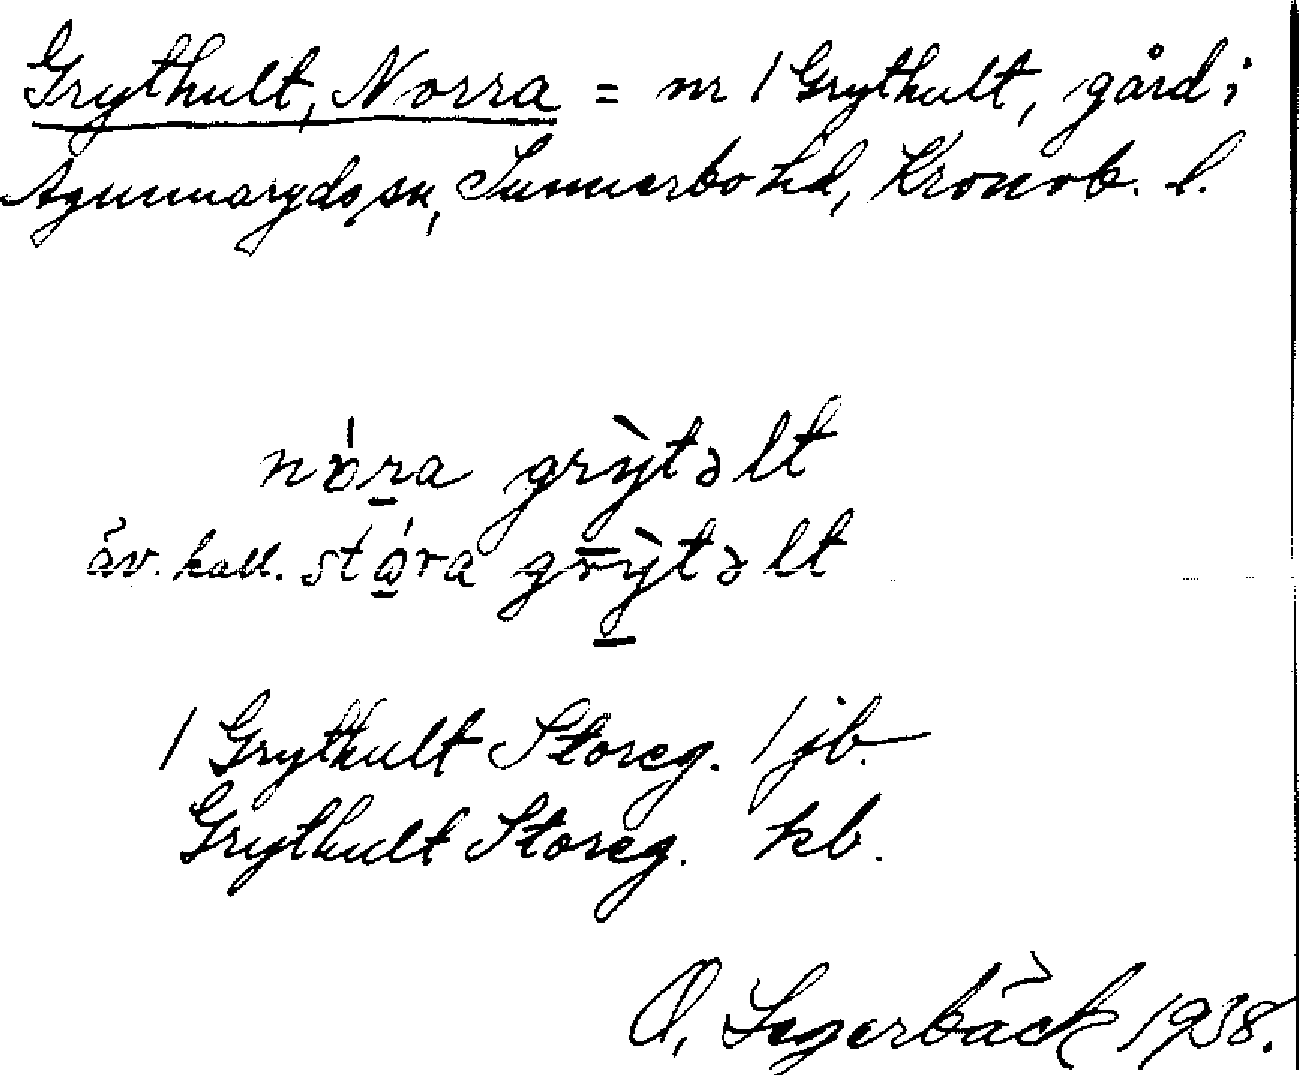 Grythult, Norra = nr 1 Grythult, gård i
Agunnaryds sn, Sunnerbo hd, Kronob. l.
nóra grỳtəlt
äv. kall. stóra grỳtəlt
1 Grythult Storeg. 1 jb.
Grythult Storeg. kb.
O. Segerbäck 1938.